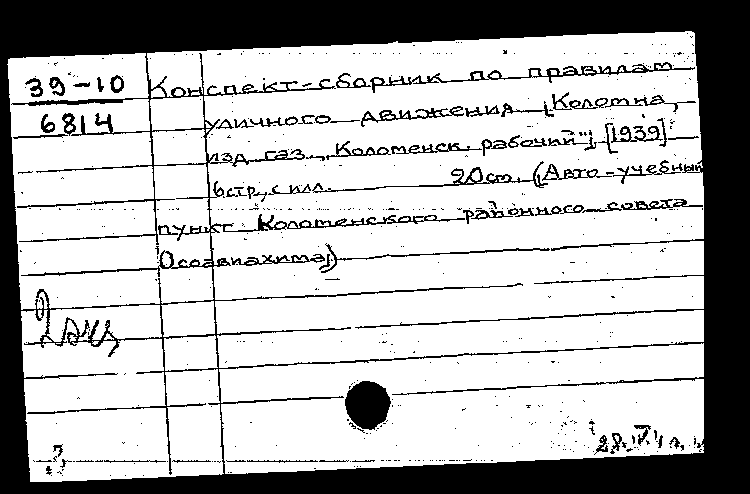 39-10
6814
Конспект-сборник по правилам
уличного движения [Коломна,
изд. газ. „Коломенск. рабочий"], [1939]
16стр., с илл. 20см. ([Авто-учебный
пункт Коломенского районного совета
Осоавиахима])
2 экз